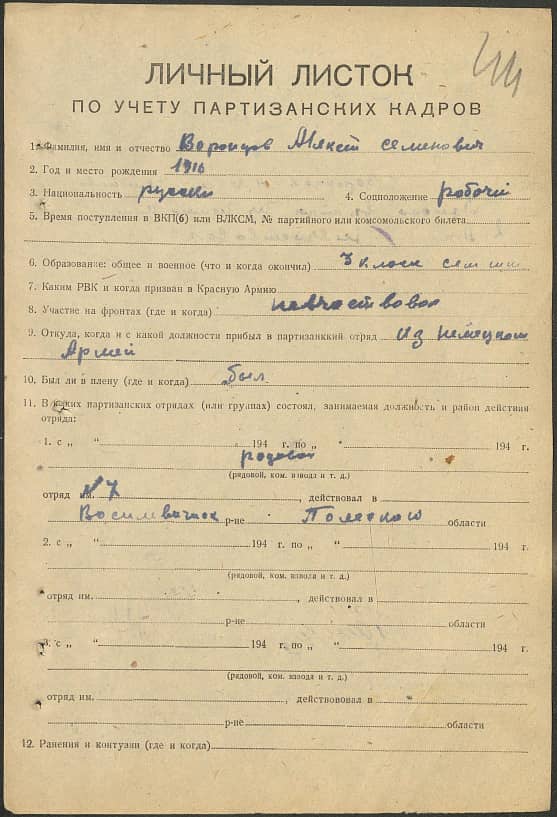 ЛИЧНЫЙ ЛИСТОК
ПО УЧЕТУ ПАРТИЗАНСКИХ КАДРОВ
1. Фамилия, имя и отчество Воронцов семенович
2. Год и место рождения 1916
3. Национальность русски 4. Соцположение рабочий
5. Время поступления в ВКП(б) или ВЛКСМ, № партийного или комсомольского билета
6. Образование: общее и военное (что и когда окончил) 3 клас
7. Каким РВК и когда призван в Красную Армию
8. Участие на фронтах (где и когда) неучаствовал
9. Откуда, когда и с какой должности прибыл в партизанский отряд из немецкой
Армей
10. Был ли в плену (где и когда) был
11. В каких партизанских отрядах (или группах) состоял, занимаемая должность и район действия
отряда:
1. с „ “ 194 г. по „ “ 194 г.
родовой
(рядовой, ком. взвода и т. д.)
отряд им. №7, действовал в
р-не области
2. с „ “ 194 г. по „ “ 194 г.
(рядовой, ком. взвода и т. д.)
отряд им. , действовал в
р-не области
3. с „ “ 194 г. по „ “ 194 г.
(рядовой, ком. взвода и т. д.)
отряд им. , действововал в
р-не области
12. Ранения и контузии (где и когда)